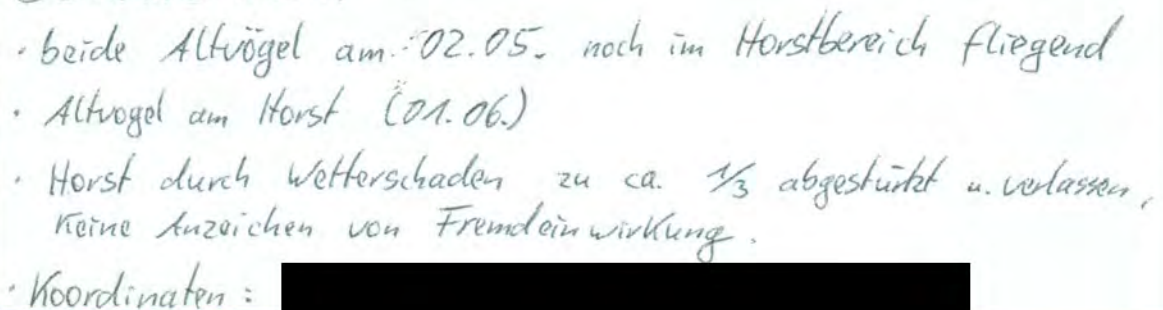 · beide Altvögel am 02.05. noch im Horstbereich fliegend
· Altvogel am Horst (01.06.)
· Horst durch Wetterschaden zu ca. 1/3 abgestürtzt u. verlassen,
Keine Anzeichen von Fremdeinwirkung.
· Koordinaten: